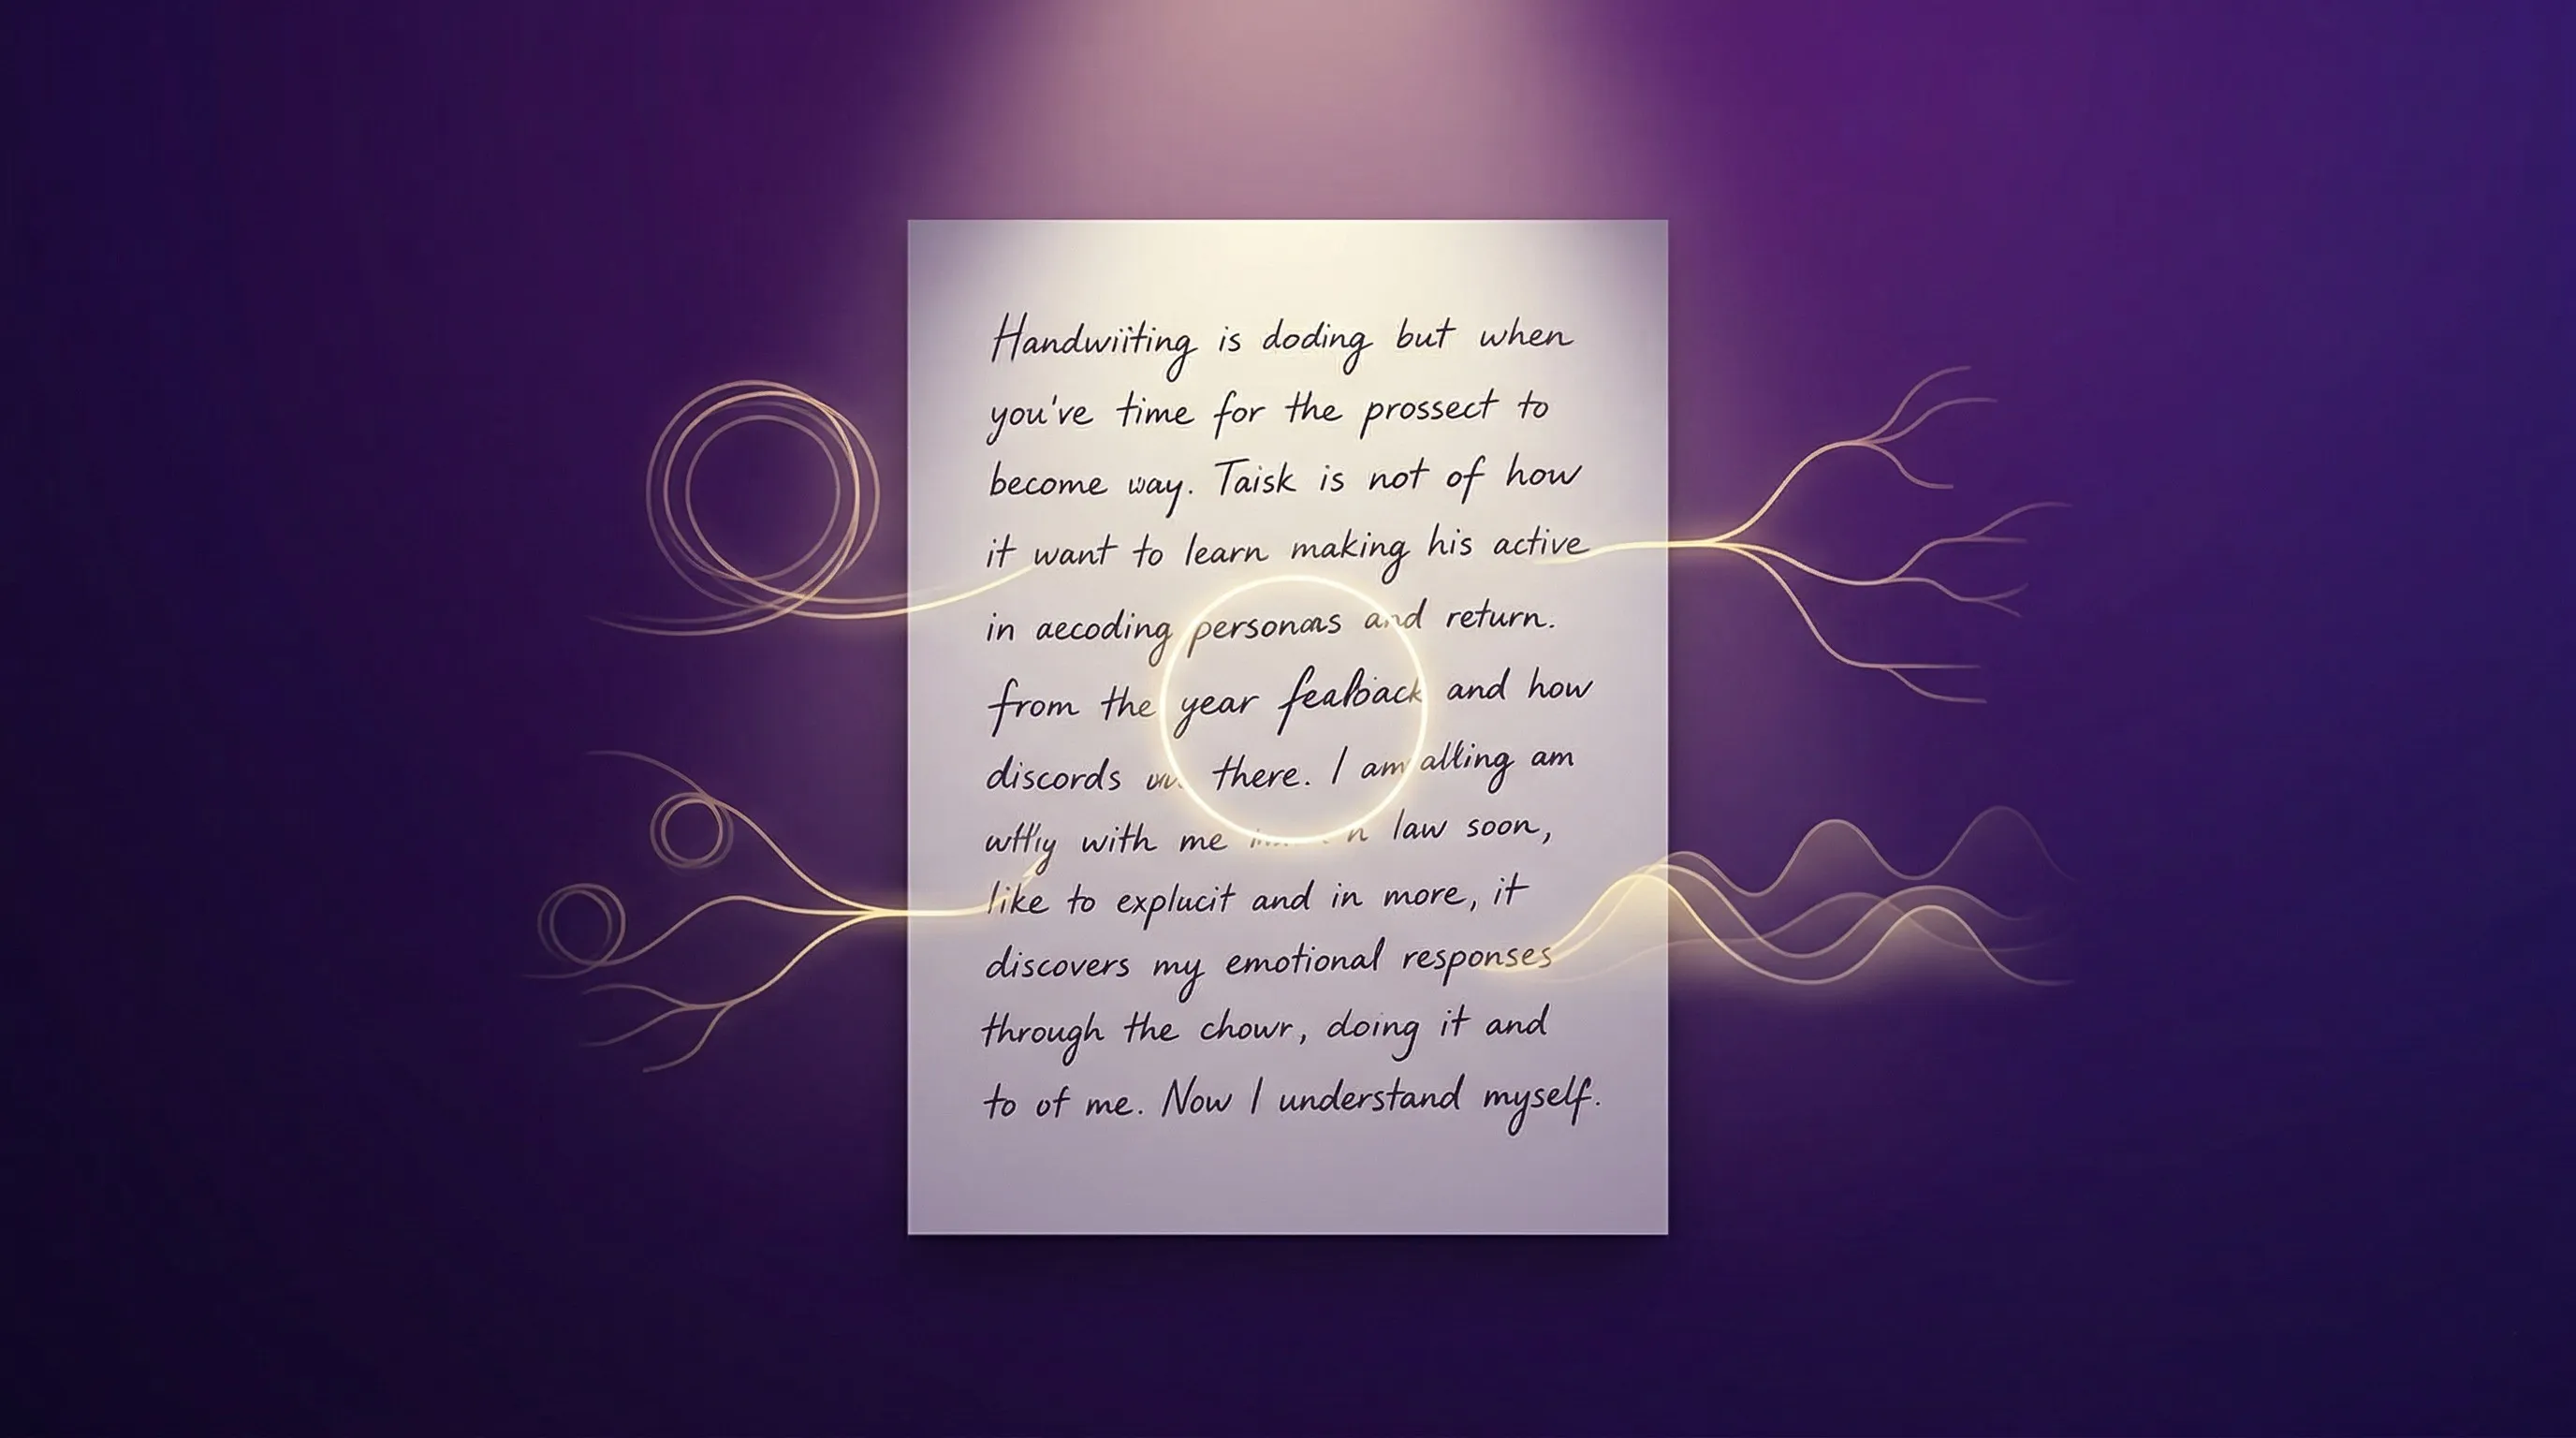 Handwiiting is doding but when
you've time for the prossect to
become way. Taisk is not of how
it want to learn making his active
in aecoding personas and return.
from the year fealback and how
discords there. I am alling am
with me law soon,
like to explucit and in more, it
discovers my emotional responses
through the chowr, doing it and
to of me. Now I understand myself.